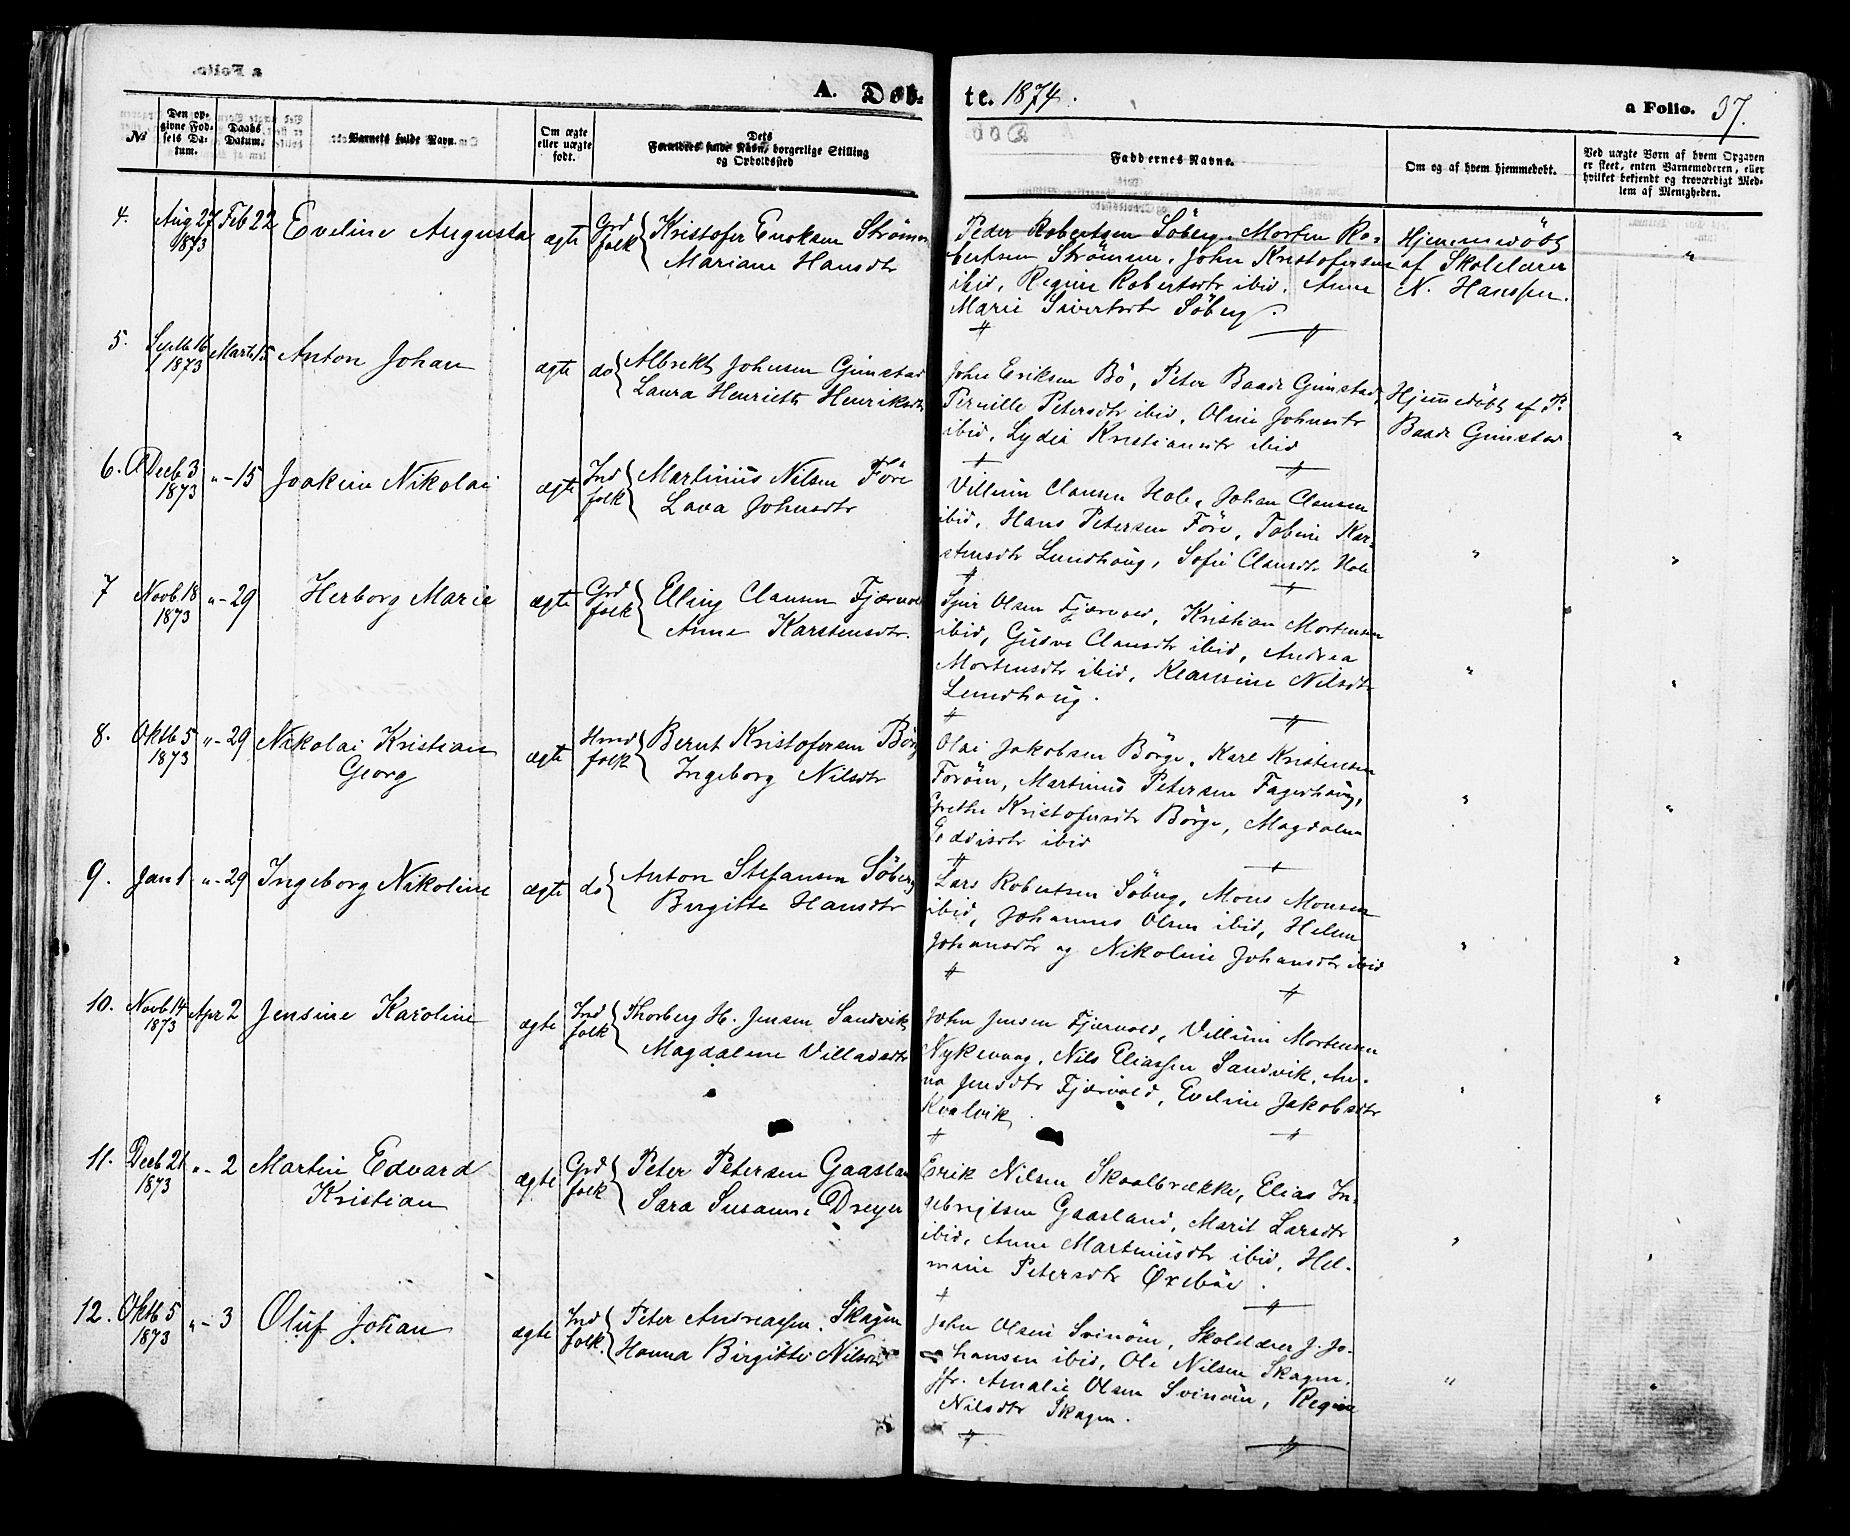 A. Døb-
te. 1874.
a Folio. 37.
No
Den op-
givne Fød-
sels Da-
tum.
Daabs
Datum.
Barnets fulde Navn.
Om ægte
eller uægte
født.
Dets
Forældres fulde Navn, borgerlige Stilling
og Opholdssted
Faddernes Navne.
Om og af hvem hjemmedøbt.
Ved uægte Børn af hvem Opgaven
er skeet, enten Barnemoderen, eller
hvilket bekjendt og troværdigt Med-
lem af Menigheden.
4. Aug 27
1873
Feb 22
Eveline Augusta
ægte
Grd
folk
Kristofer Enoksen Strømen
Mariane Hansdtr
Peder Robertsen Söberg, Morten Ro-
bertsen Strømmen, John Kristofersen
ibid, Regine Robertsdtr ibid, Anne
Marie Sivertsdtr Söberg.
Hjemmedöbt
af Skolelærer
N. Hanssen.
"
5. Septb 16
1873
Marts 15
Anton Johan
ægte
do
Albrekt Johnsen Gimstad
Laura Henriette Henriksdtr
John Eriksen Bö, Peter Baade Gimstad,
Pernille Petersdtr ibid, Oline Johnsdtr
ibid, Lydia Kristiansdtr ibid
Hjemmedöbt af P.
Baade Gimstad
"
6. Decb 3
1873
"-15
Joakim Nikolai
ægte
Ind
folk
Martinus Nilsen Före
Lava Johnsdtr
Villum Clausen Hole, Johan Clausen
ibid, Hans Petersen Före, Tobine Kar-
stensdtr Lundhoug, Sofie Clausdtr Hole
"
"
7 Novb 18
1873
"-29
Herborg Marie
ægte
Grd
folk
Elling Clausen Fjærvold
Anne Karstensdtr.
Sjur Olsen Fjærvold, Kristian Mortensen
ibid, Gusva Clausdtr ibid, Andrea
Mortensdtr ibid, Klausine Nilsdtr
Lundhoug.
"
"
8. Oktb 5
1873
"-29
Nikolai Kristian
Georg
ægte
Hmd
folk
Bernt Kristofersen Börg
Ingeborg Nilsdtr
Olai Jakobsen Börge, Karl Kristensen
Foröin, Martinus Petersen Fagerhoug,
Grethe Kristofersdtr Börge, Magdalena
Geddisdtr ibid
"
"
9. Jan 1
"-29
Ingeborg Nikoline
ægte
do
Anton Stefansen Söberg
Birgitte Hansdtr
Lars Robertsen Söberg, Mons Monsen
ibid, Johannes Olsen ibid, Helene
Johansdtr og Nikoline Johansdtr ibid
"
"
10. Novb 14
1873
Apr 2
Jensine Karoline
ægte
Ind
folk
Thorberg H. Jensen Sandvik
Magdalene Villadsdtr
John Jensen Fjærvold, Villum Mortensen
Nykevaag, Nils Eliassen Sandvik, An-
na Jensdtr Fjærvold, Eveline Jakobsdtr
Kvalvik
"
"
11. Decb 21
1873
"-2
Martin Edvard
Kristian
ægte
Grd
folk
Peter Petersen Gaasland
Sara Susanne Dreyer
Erik Nilsen Skaalbrække, Elias In-
gebrigtsen Gaasland, Marit Larsdtr
ibid, Anne Martinusdtr ibid, Hel-
mine Petersdtr Øxebøe.
"
"
12. Oktb 5
1873
"-3
Oluf Johan
ægte
Ind
folk.
Peter Andreassen Skagen
Hanna Birgitte Nilsdtr
John Olsen Svinöin, Skolelærer J. Jo-
hansen ibid, Ole Nilsen Skagen,
Jfr. Amalie Olsen Svinöin, Regine
Nilsdtr Skagen.
"
"